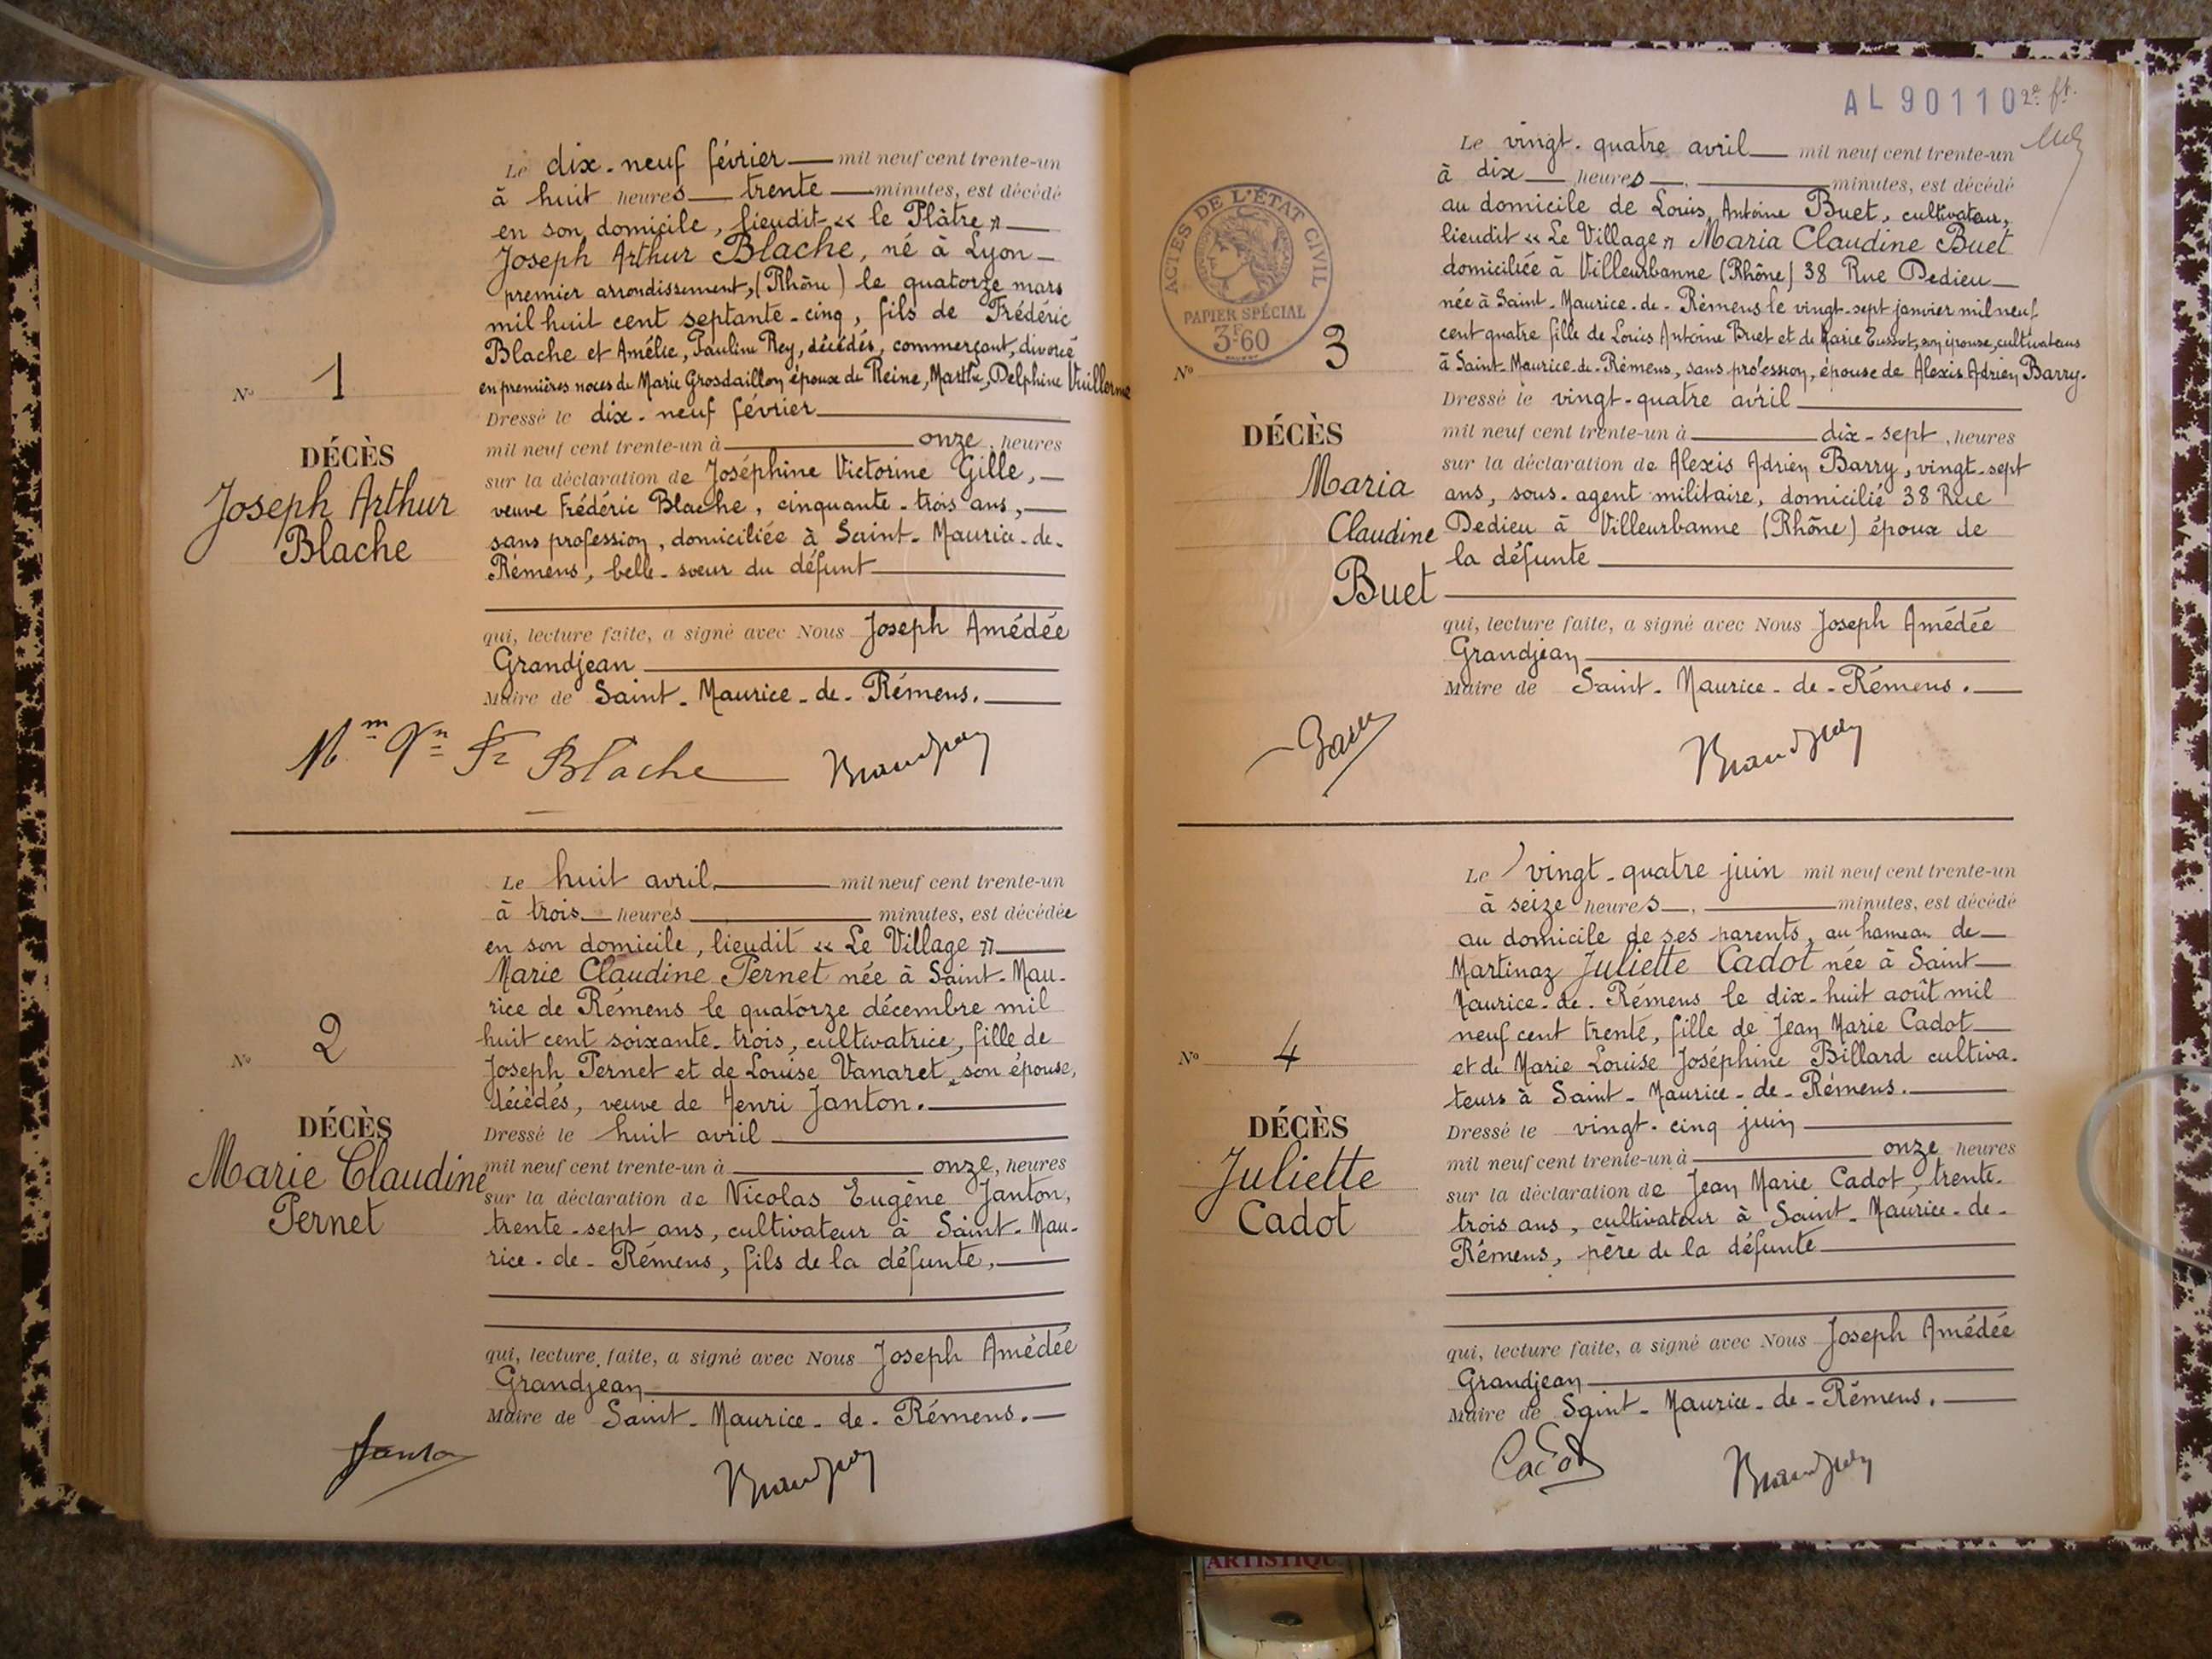 Le dix-neuf février mil neuf cent trente-un
à huit heures trente minutes, est décédé
en son domicile, lieudit « le Plâtre »
Joseph Arthur Blache, né à Lyon
premier arrondissement, (Rhône) le quatorze mars
mil huit cent septante-cinq, fils de Frédéric
Blache et Amélie, Pauline Rey, décédés, commerçant, divorcé
en premières noces de Marie Grosdaillon époux de Reine, Marthe, Delphine Vuillerme
Dressé le dix-neuf février
mil neuf cent trente-un à onze, heures
sur la déclaration de Joséphine Victorine Gille,
veuve Frédéric Blache, cinquante-trois ans,
sans profession, domiciliée à Saint-Maurice-de-
Rémens, belle-soeur du défunt
qui, lecture faite, a signé avec Nous Joseph Amédée
Grandjean
Maire de Saint-Maurice-de-Rémens.
No 1
DÉCÈS
Joseph Arthur
Blache
Mme Vn Fc Blache
Grandjean
Le huit avril mil neuf cent trente-un
à trois heures minutes, est décédée
en son domicile, lieudit « Le Village »
Marie Claudine Pernet née à Saint-Mau-
rice de Rémens le quatorze décembre mil
huit cent soixante-trois, cultivatrice, fille de
Joseph Pernet et de Louise Vanaret, son épouse,
décédés, veuve de Henri Janton.
Dressé le huit avril
mil neuf cent trente-un à onze, heures
sur la déclaration de Nicolas Eugène Janton,
trente-sept ans, cultivateur à Saint-Mau-
rice-de-Rémens, fils de la défunte,
qui, lecture faite, a signé avec Nous Joseph Amédée
Grandjean
Maire de Saint-Maurice-de-Rémens.
No 2
DÉCÈS
Marie Claudine
Pernet
Janton
Grandjean
AL 90110 2e ft.
Le vingt-quatre avril mil neuf cent trente-un
à dix heures minutes, est décédé
au domicile de Louis Antoine Buet, cultivateur,
lieudit « Le Village » Maria Claudine Buet
domiciliée à Villeurbanne (Rhône) 38 Rue Dedieu
née à Saint-Maurice-de-Rémens le vingt-sept janvier mil neuf
cent quatre fille de Louis Antoine Buet et de Marie son épouse, cultivateurs
à Saint-Maurice-de-Rémens, sans profession, épouse de Alexis Adrien Barry.
Dressé le vingt-quatre avril
mil neuf cent trente-un à dix-sept, heures
sur la déclaration de Alexis Adrien Barry, vingt-sept
ans, sous-agent militaire, domicilié 38 Rue
Dedieu à Villeurbanne (Rhône) époux de
la défunte
qui, lecture faite, a signé avec Nous Joseph Amédée
Grandjean
Maire de Saint-Maurice-de-Rémens.
ACTES DE L'ÉTAT CIVIL
PAPIER SPÉCIAL
3F60
No 3
DÉCÈS
Maria
Claudine
Buet
Barry
Grandjean
Le vingt-quatre juin mil neuf cent trente-un
à seize heures minutes, est décédé
au domicile de ses parents, au hameau de
Martinaz Juliette Cadot née à Saint
Maurice-de-Rémens le dix-huit août mil
neuf cent trente, fille de Jean Marie Cadot
et de Marie Louise Joséphine Billard cultiva-
teurs à Saint-Maurice-de-Rémens.
Dressé le vingt-cinq juin
mil neuf cent trente-un à onze heures
sur la déclaration de Jean Marie Cadot, trente-
trois ans, cultivateur à Saint-Maurice-de-
Rémens, père de la défunte
qui, lecture faite, a signé avec Nous Joseph Amédée
Grandjean
Maire de Saint-Maurice-de-Rémens.
No 4
DÉCÈS
Juliette
Cadot
Cadot
Grandjean
ARTISTIQU